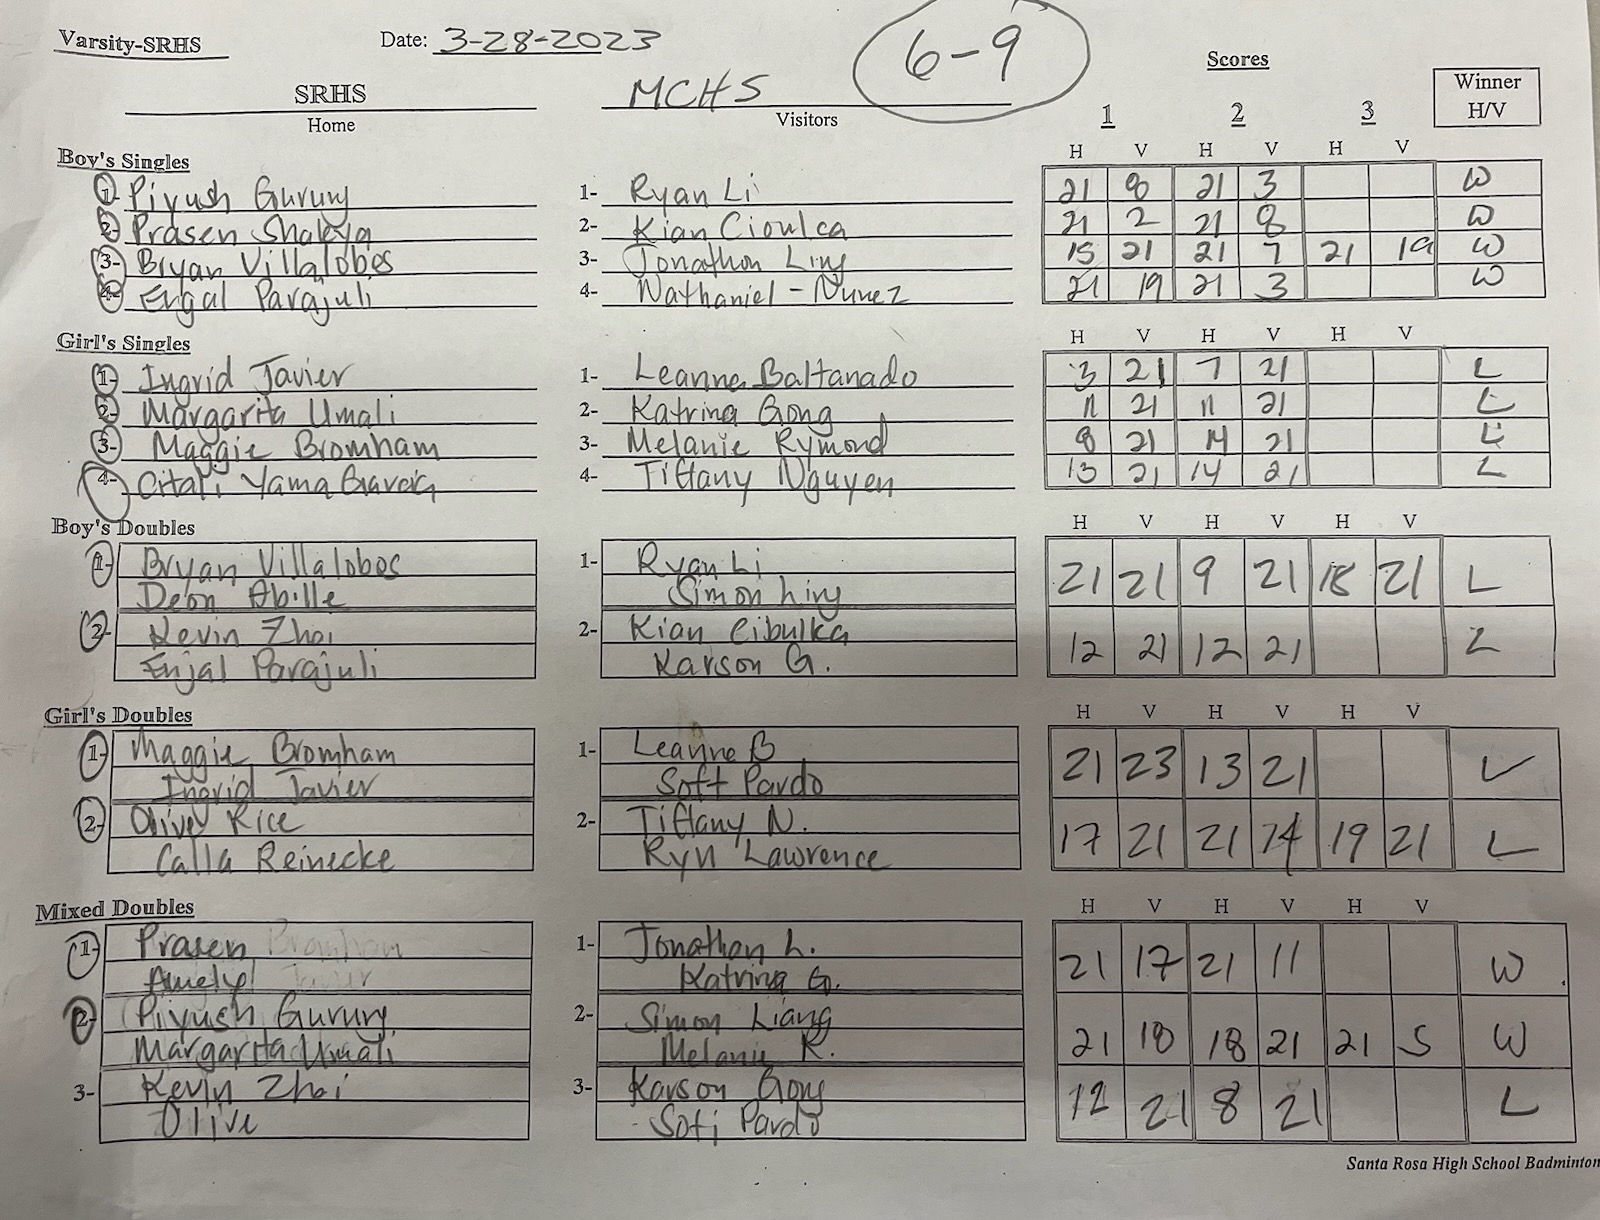 Varsity-SRHS Date: 3-28-2023 6-9
Scores
SRHS MCHS 1 2 3 Winner H/V
Home Visitors
Boy's Singles H V H V H V
1- Piyush Gurung 1- Ryan Li 21 8 21 3 W
2- Prasen Shakya 2- Kian Cioulca 21 2 21 8 W
3- Bryan Villalobos 3- Jonathon Ling 15 21 21 7 21 19 W
4- Engal Parajuli 4- Nathaniel - Nunez 21 19 21 3 W
Girl's Singles H V H V H V
1- Ingrid Javier 1- Leanna Baltanado 3 21 7 21 L
2- Margarita Umali 2- Katrina Gong 11 21 11 21 L
3- Maggie Bromham 3- Melanie Rymond 8 21 14 21 L
4- Citali Yama Garcia 4- Tiffany Nguyen 13 21 14 21 L
Boy's Doubles H V H V H V
1- Bryan Villalobos 1- Ryan Li 21 21 9 21 18 21 L
Deon Abille Simon Ling
2- Kevin Zhai 2- Kian Cibulka 12 21 12 21 L
Enjal Parajuli Karson G.
Girl's Doubles H V H V H V
1- Maggie Bromham 1- Leanne B 21 23 13 21 L
Ingrid Javier Soft Pardo
2- Olive Rice 2- Tiffany N. 17 21 21 14 19 21 L
Calla Reinecke Ryn Lawrence
Mixed Doubles H V H V H V
1- Prasen 1- Jonathan L. 21 17 21 11 W
Katrina G.
2- Piyush Gurung 2- Simon Liang 21 18 18 21 21 5 W
Margarita Umali Melanie R.
3- Kevin Zhai 3- Karson Gong 12 21 8 21 L
Olive Sofi Pardo
Santa Rosa High School Badminton